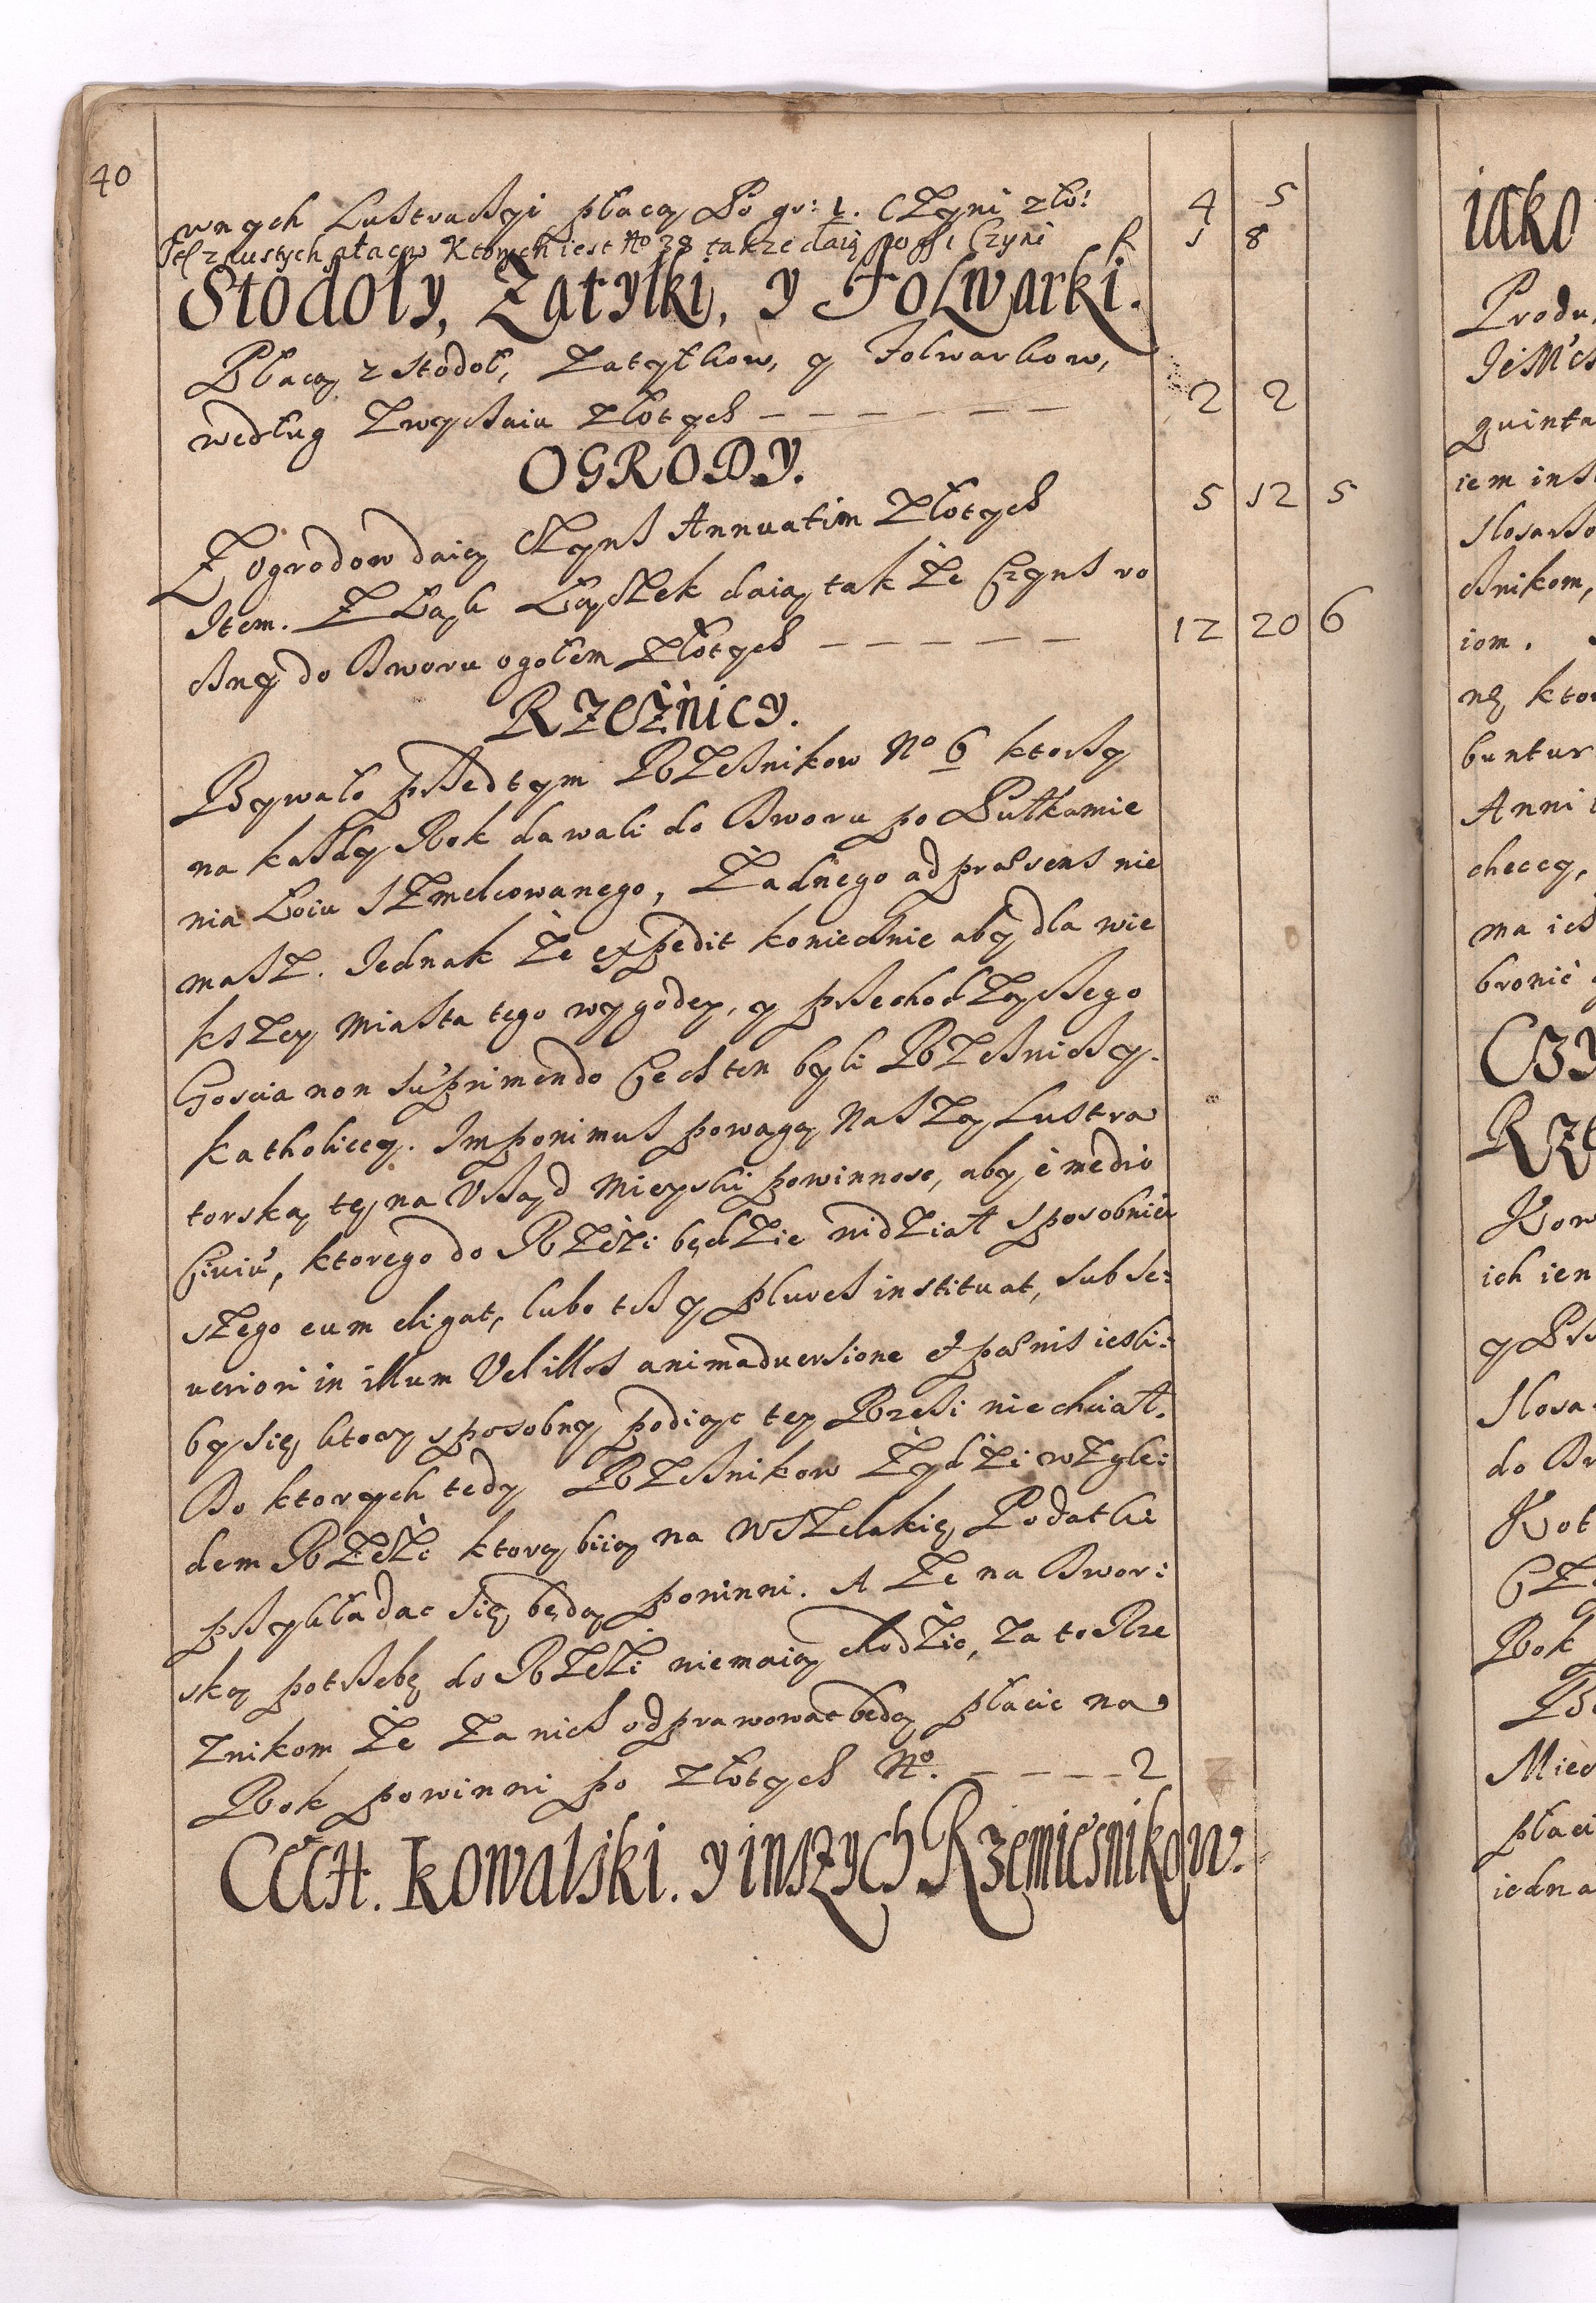 40
wnych Lustraciyi płacą Po gr: 1. Czyni zło: 4 5
Itē z pustych płacow Ktorych iest No 38 takze daią po gr 1 Czyni f 1 8
Stodoły, Zatylki, y Folwarki.
Płacą z stodoł, Zatyłkow, y Folwarkow,
według Zwyczaiu Złotych — — — — — — — 2 2
OGRODY.
Z Ogrodow daią Czynsz Annuatim Złotych 5 12 5
Item. Z Łąk Łączek daią tak Że Czynsz ro
czny do Dworu ogołem Złotych — — — — — 12 20 6
RZeŻnicy.
Bywało przedtym RZeznikow No 6 ktorzy
na kazdy Rok dawali do Dworu po Putkamie
nia Łoiu SZmelcowanego, Żadnego ad præsens nie
masZ. Jednak Że expedit koniecznie aby dla wie
kszey Miasta tego wygody, y przechodZącego
Goscia non suprimendo Cech ten byli RZeznicy
Katholiccy. Imponimus powagą NaszZą Lustra
torską tę na Urząd Mieyski powinnosc, aby è medio
Civiū, ktorego do RZeźi będZie widZiał sposobniey
szego eum eligat, lubo tez y plures instituat, sub se:
veriori in illum Vel illos animadversione et pænis iesli:
by się ktory sposobny podiąc tey Rzezi niechciał.
Do ktorych tedy RZeznikow ŻydZi wZglę:
dem RZeŻi ktorą biią na wszelakie Podatki
przykładac się będą powinni. A Że na Dwor:
ską potrzebę do RZeŻi niemaią chodZic, Za to Rze
znikom Że Za nich odprawowac będą płacic na
Rok powinni po Złotych No. — — — — 2
CECH. Kowalski. y inszych Rzemiesnikow.
iako
Produ
JeMcs
quinta
iem ins
slosars
cznikom,
iom.
nę ktor
buntur
Anni
checcy,
ma ich
bronic
CZY
RZe
Kow
ich ien
y Sl
Slosa
do Dr
Kot
CZ
Rok
Miec
płaci
iedna